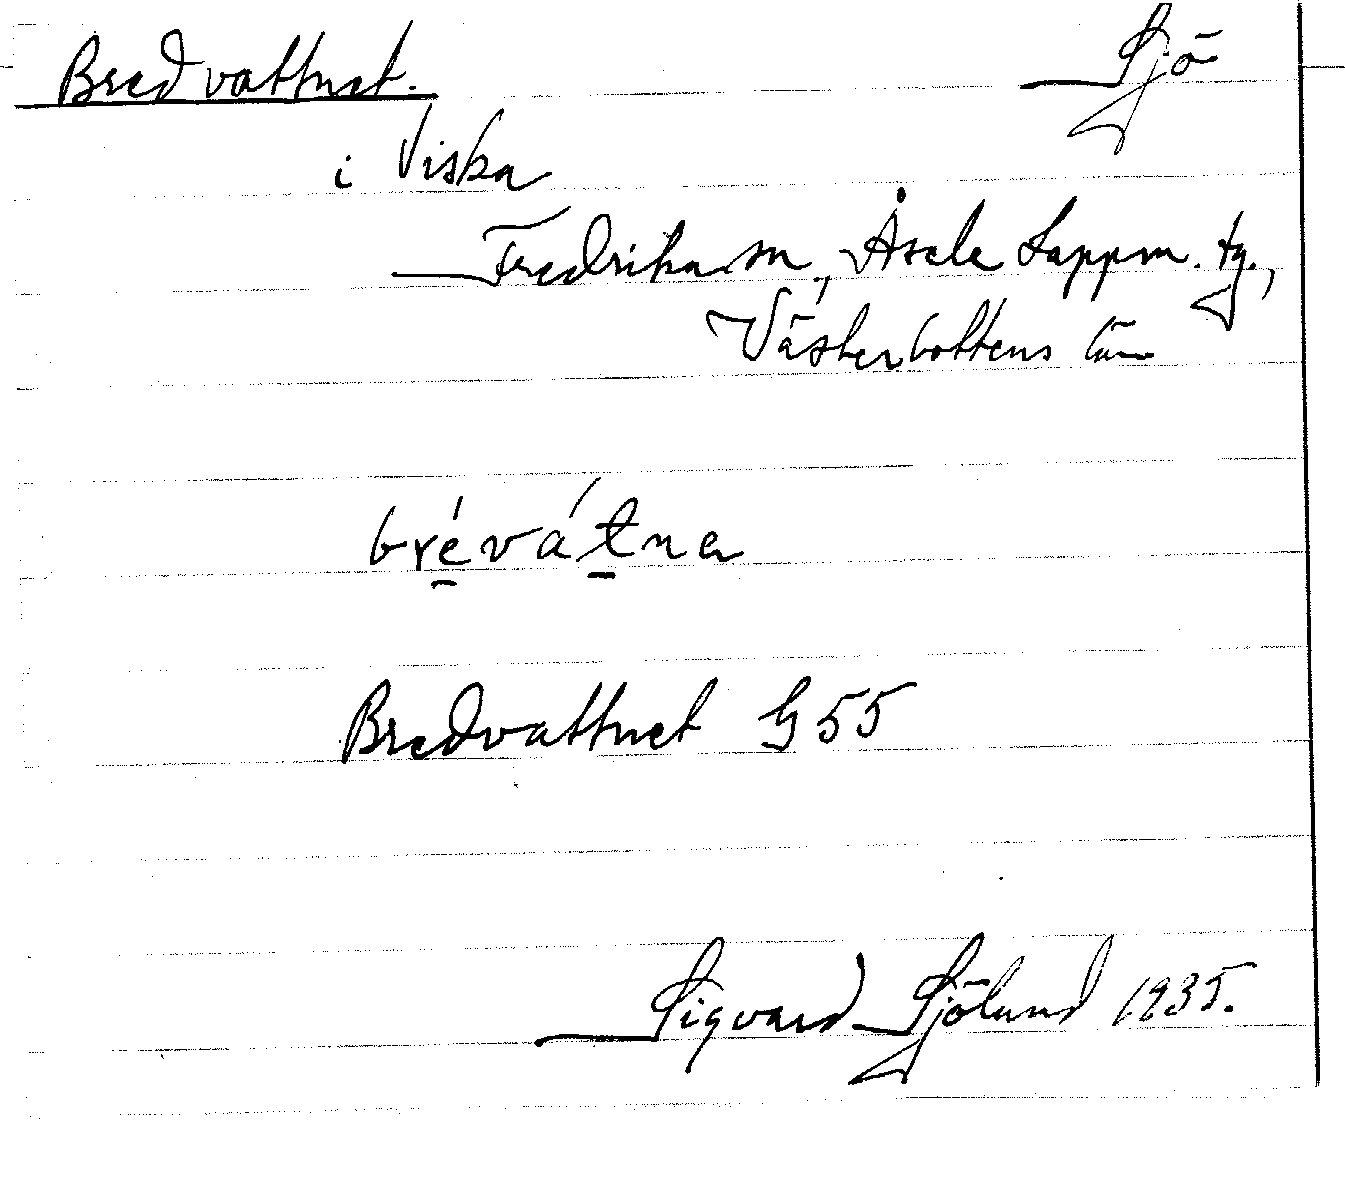 Bredvattnet. Sjö
i Viska
Fredrika sn, Åsele Lappm. tg.,
Västerbottens län
brévátna
Bredvattnet G55
Sigvard Sjölund 1935.